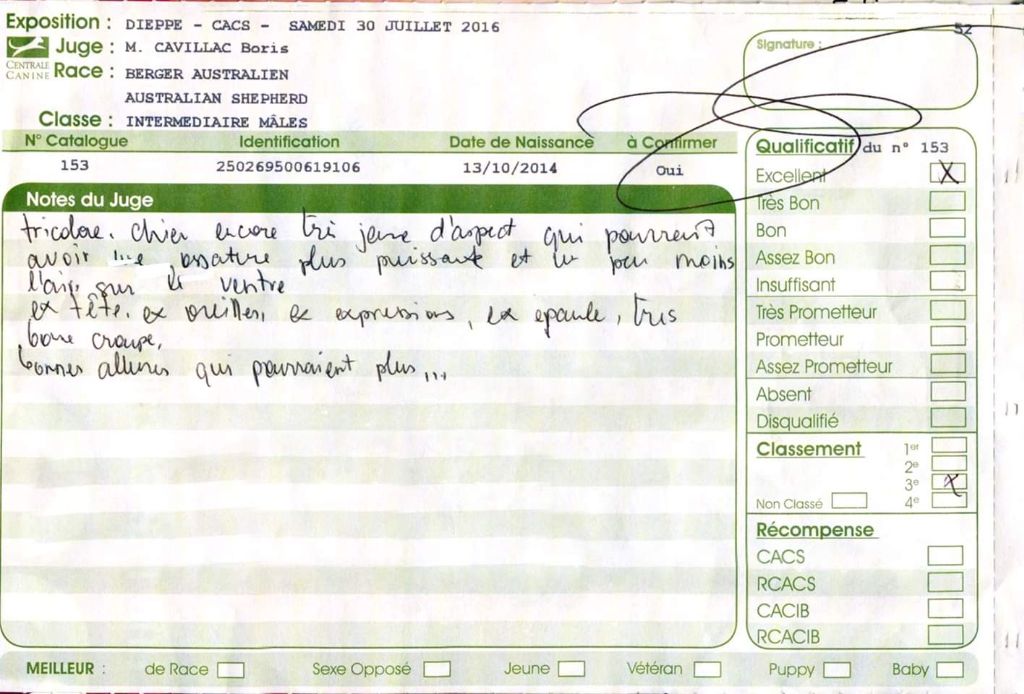 Exposition : DIEPPE - CACS - SAMEDI 30 JUILLET 2016
52
Juge : M. CAVILLAC Boris
CENTRALE CANINE
Race : BERGER AUSTRALIEN
AUSTRALIAN SHEPHERD
Classe : INTERMEDIAIRE MÂLES
Signature :
N° Catalogue Identification Date de Naissance à Confirmer
153 250269500619106 13/10/2014 Oui
Notes du Juge
tricolore. chien encore très jeune d'aspect qui pourrait
avoir une ossature plus puissante et un peu moins
sur le ventre
ex tête. ex oreilles, ex expressions, ex epaule, très
bonne croupe,
bonnes allures qui pourraient plus...
Qualificatif du n° 153
Excellent X
Très Bon
Bon
Assez Bon
Insuffisant
Très Prometteur
Prometteur
Assez Prometteur
Absent
Disqualifié
Classement 1er
2e
3e X
Non Classé 4e
Récompense
CACS
RCACS
CACIB
RCACIB
MEILLEUR : de Race Sexe Opposé Jeune Vétéran Puppy Baby